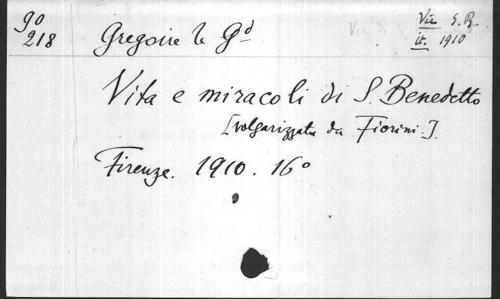 90
218
Gregoire le Gd
Vie S. B.
it. 1910
Vita e miracoli di S. Benedetto
[volgarizzata da Fiorini.]
Firenze. 1910. 16o